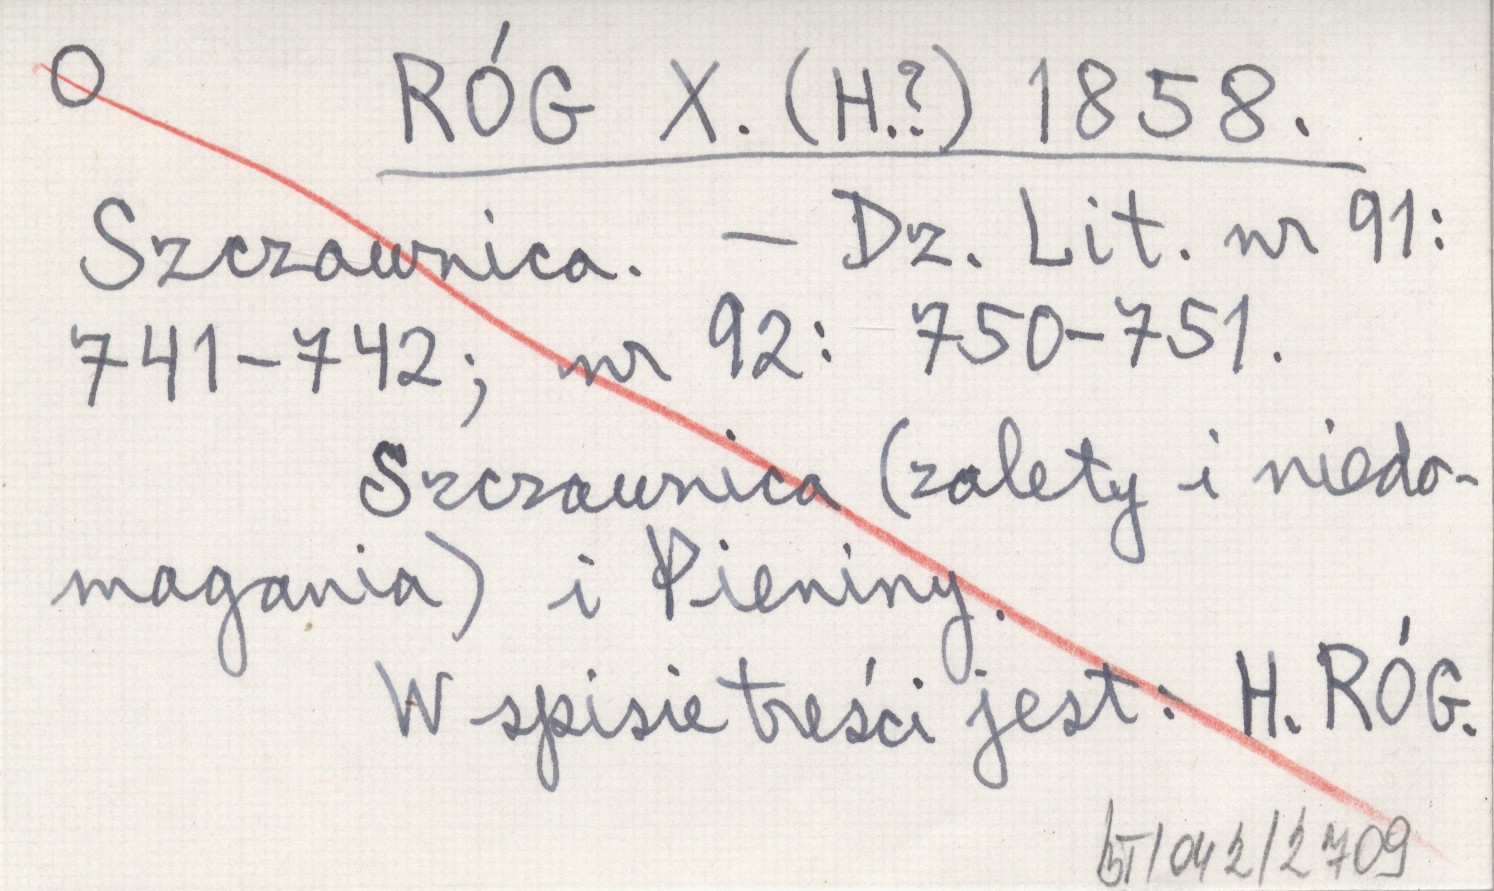 O RÓG X. (H.?) 1858.
Szczawnica. — Dz. Lit. nr 91:
741-742; nr 92: 750-751.
Szczawnica (zalety i niedo-
magania) i Pieniny.
W spisie treści jest: H. RÓG.
BT/042/2709